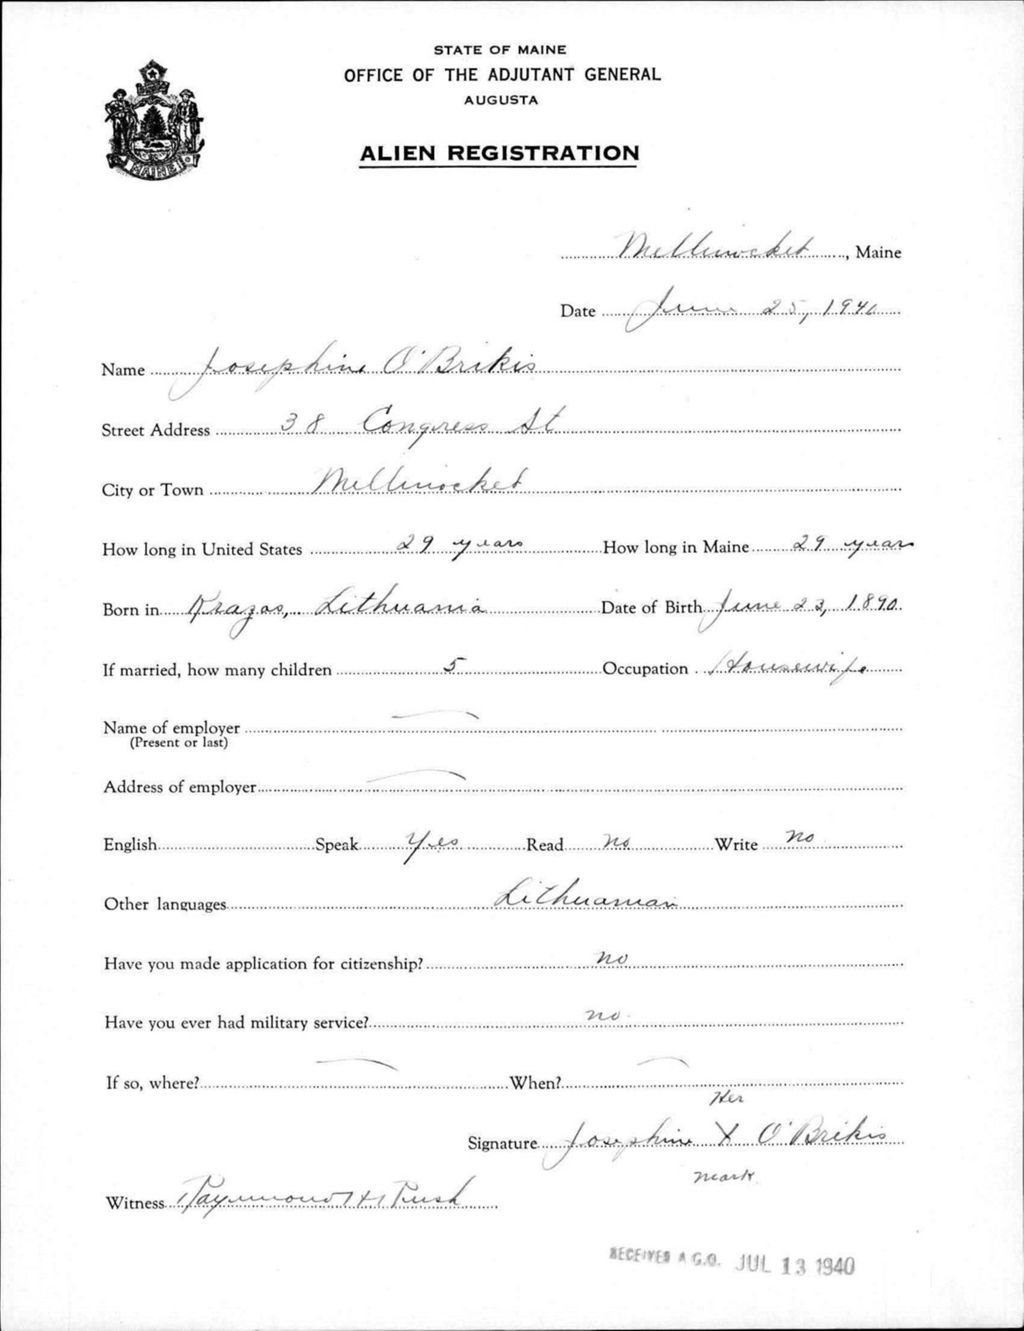 STATE OF MAINE
OFFICE OF THE ADJUTANT GENERAL
AUGUSTA
MAINE
ALIEN REGISTRATION
Millinocket, Maine
Date June 25, 1940
Name Josephine O'Brikis
Street Address 38 Congress St
City or Town Millinocket
How long in United States 29 years How long in Maine 29 years
Born in Krazas, Lithuania Date of Birth June 23, 1890
If married, how many children 5 Occupation Housewife
Name of employer
(Present or last)
Address of employer
English Speak Yes Read no Write no
Other languages Lithuanian
Have you made application for citizenship? no
Have you ever had military service? no
If so, where? When?
Her
Signature Josephine X O'Brikis
mark
Witness Raymond H Rush
RECEIVED A.G.O. JUL 13 1940